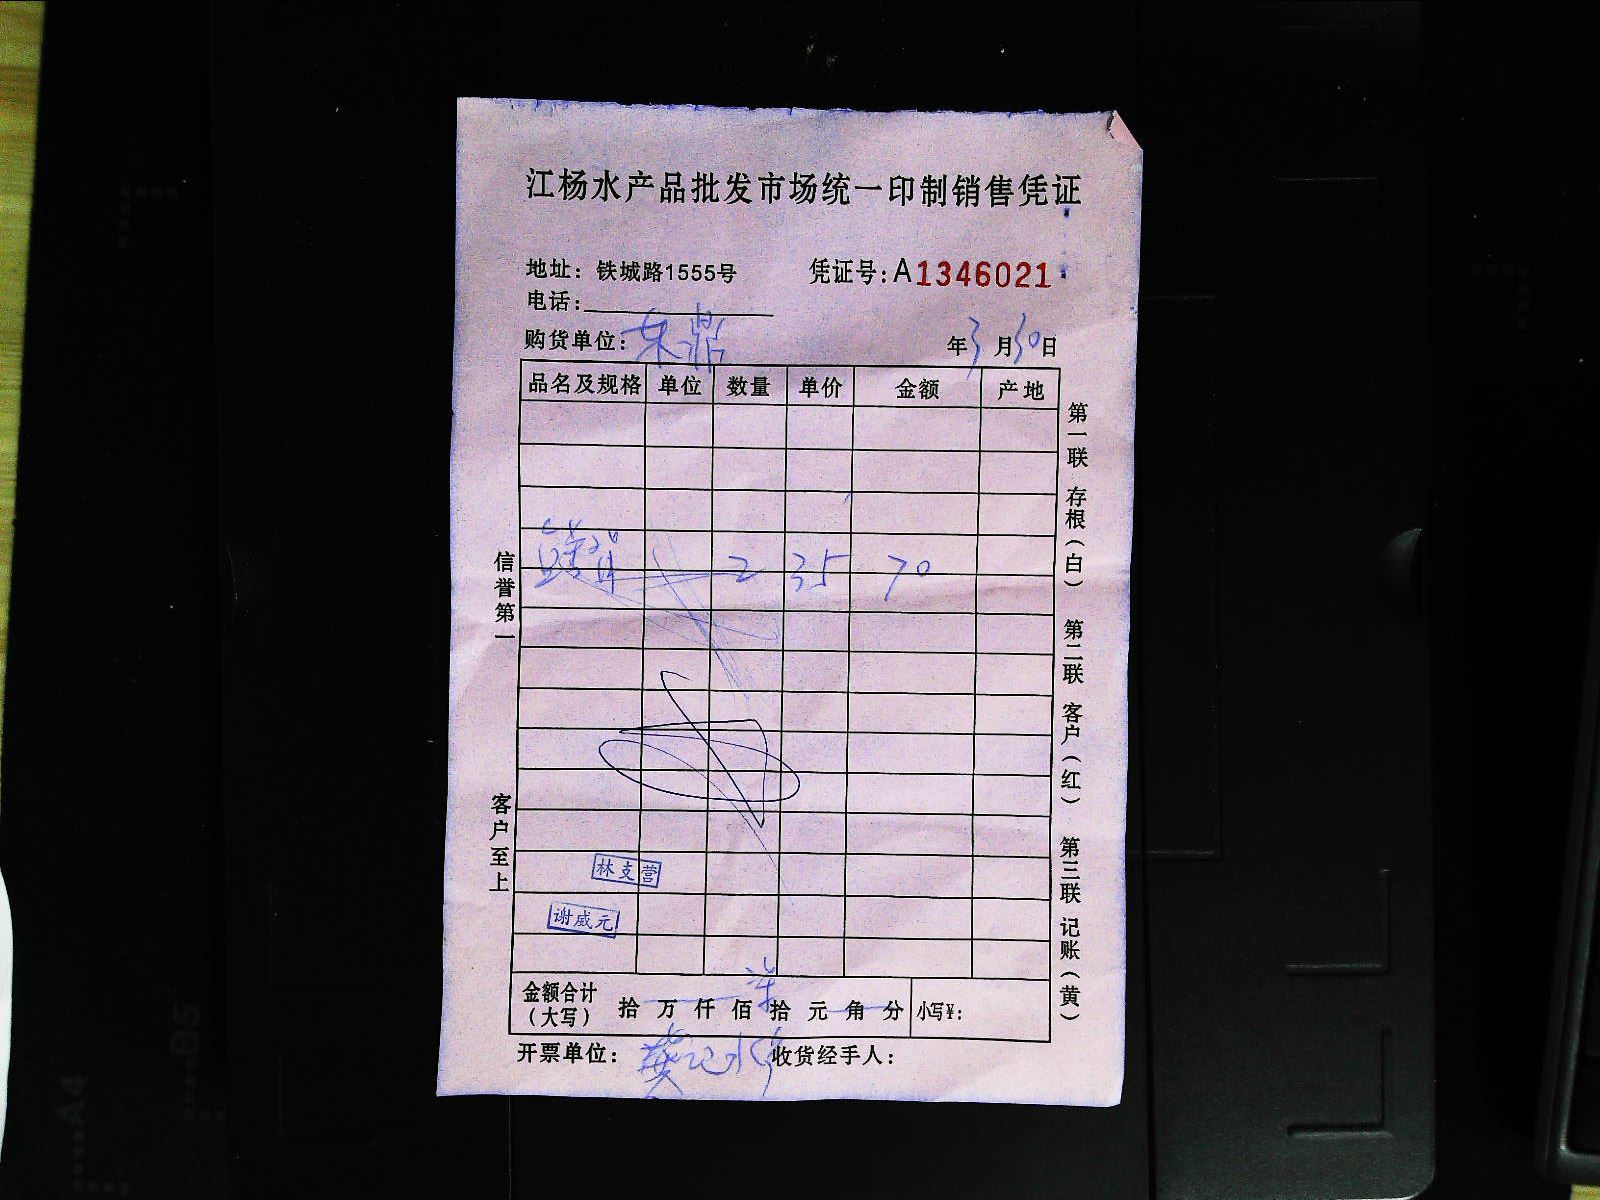 江杨水产品批发市场统一印制销售凭证
地址：铁城路1555号 凭证号：A1346021
电话：
购货单位： 年3月30日
品名及规格 单位 数量 单价 金额 产地
2 35 70
林支营
谢威元
金额合计（大写） 拾 万 仟 佰 柒 拾 元 角 分 小写¥：
开票单位： 收货经手人：
信誉第一
客户至上
第一联 存根（白） 第二联 客户（红） 第三联 记账（黄）